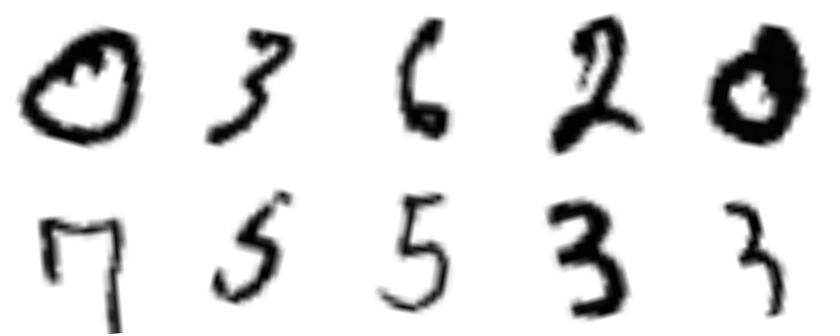 0 3 6 2 0
7 5 5 3 3